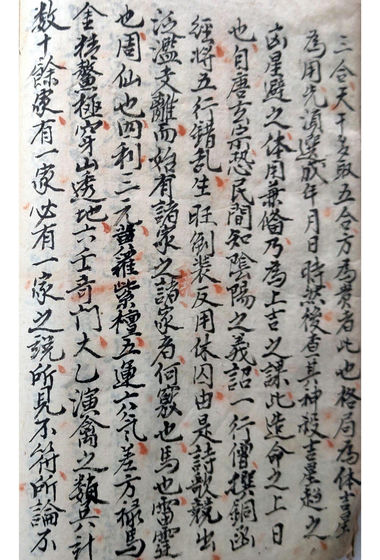 三合天干爻取五合方為貴者此也格局為体吉星
為用先須選成年月日時然後查其神殺吉星趋之
凶星避之体用兼俻乃為上吉之課此造命之上日
也自唐玄宗恐民間知陰陽之義詔一行僧撰銅函
經將五行錯乱生旺倒装反用休囚由是詩歌競出
泛濫支離而始有諸家之諸家者何竅也馬也雷霆
也周仙也四利三元黄羅紫檀五運六炁差方禄馬
金精鰲極穿山透地六壬奇門大乙演禽之類共計
数十餘家有一家必有一家之説所見不符所論不